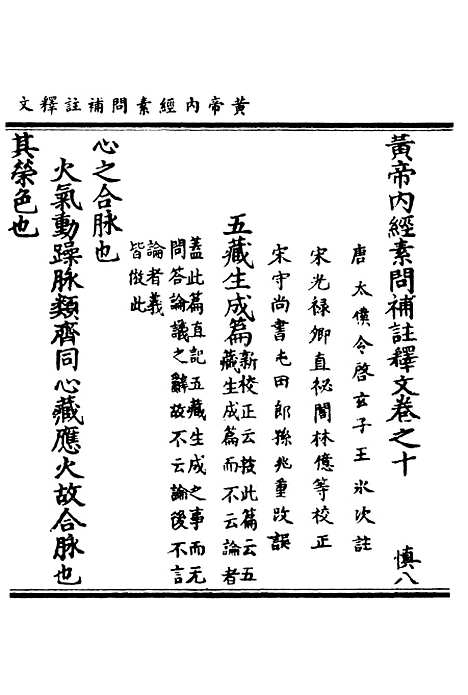 黃帝内經素問補註釋文
黃帝内經素問補註釋文卷之十
慎八
唐太僕令啓玄子王冰次註
宋光禄卿直祕閣林億等校正
宋守尚書屯田郎孫兆重改誤
五藏生成篇新校正云按此篇云五
藏生成篇而不云論者
蓋此篇直記五藏生成之事而无
問答論議之辭故不云論後不言
論者義
皆倣此
心之合脉也
火氣動躁脉類齊同心藏應火故合脉也
其榮色也